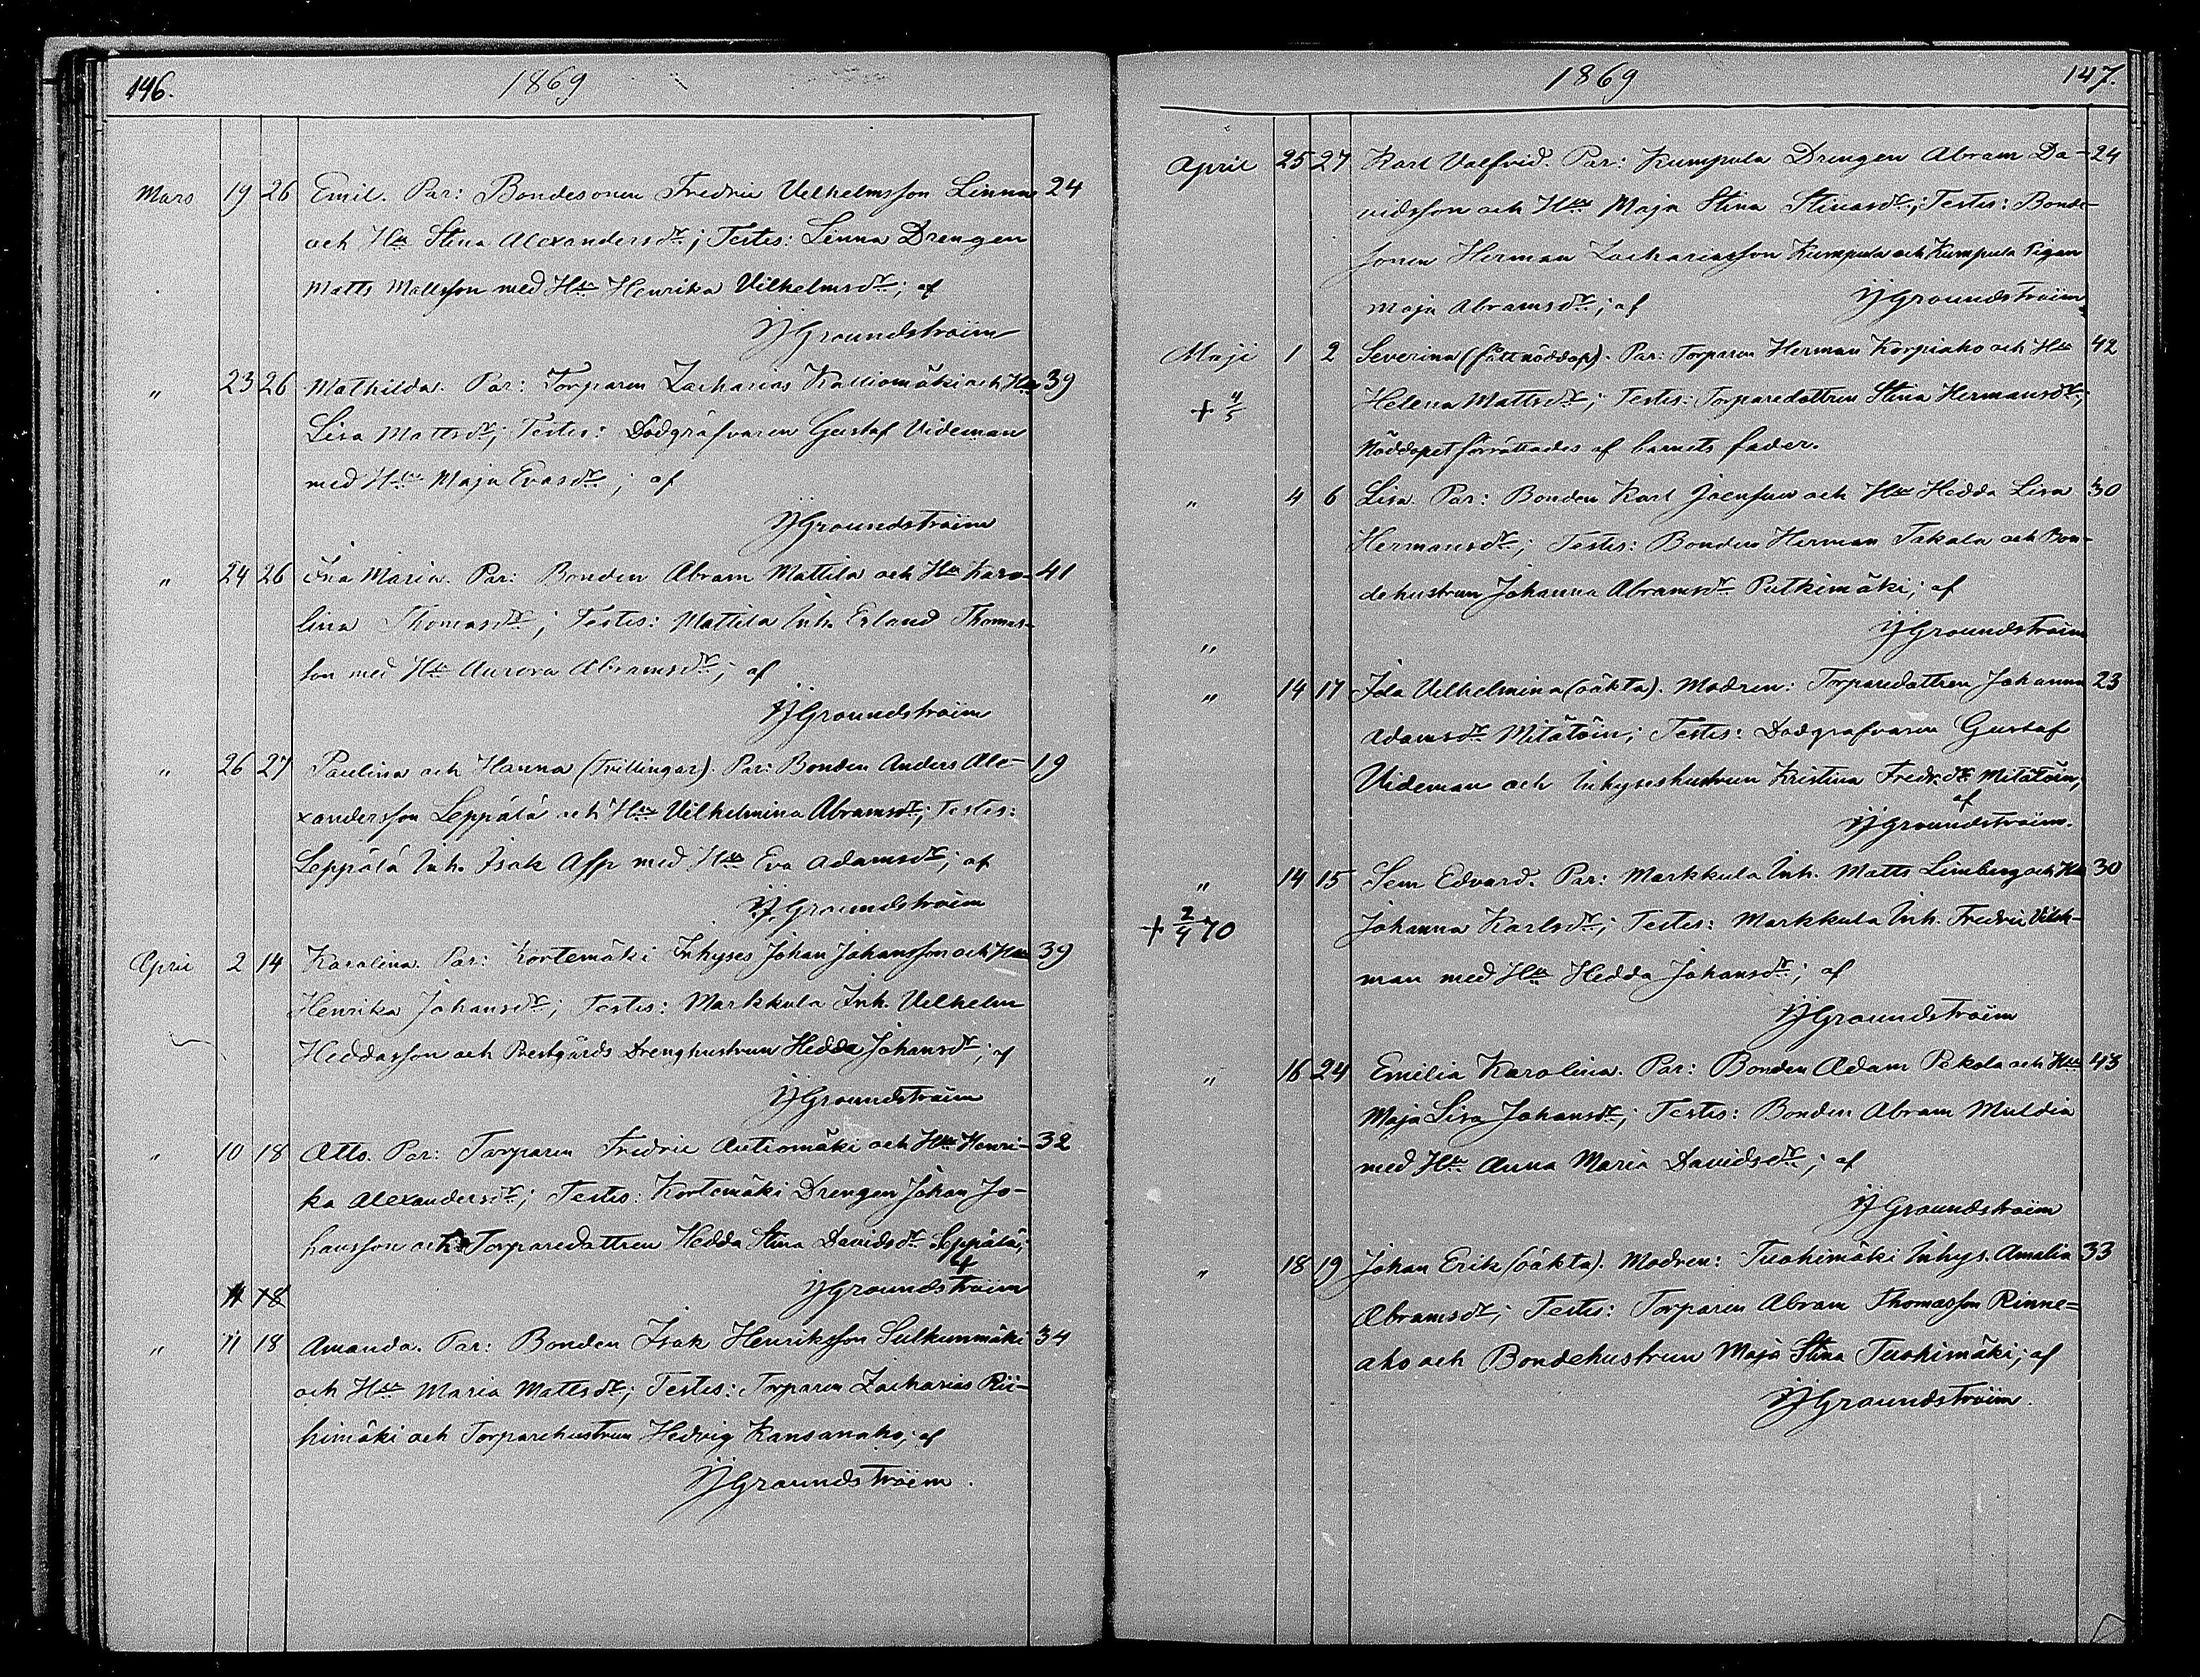 146. 1869
Mars 19 26 Emil. Par: Bondesonen Fredric Vilhelmsson Linna 24
och Hu Stina Alexandersdr; Testes: Linna Drengen
Matts Mattsson med Hu Henrika Vilhelmsdr; af
JJGroundstroim
" 23 26 Mathilda. Par: Torparen Zacharias Kalliomäki och Hu 39
Lisa Mattsdr; Testes: Dödgräfvaren Gustaf Videman
med Hu Maja Evasdr; af
JJGroundstroim
" 24 26 Ina Maria. Par: Bonden Abram Mattila och Hu Karo- 41
lina Thomasdr; Testes: Mattila Inh. Erland Thomas-
son med Hu Aurora Abramsdr; af
JJGroundstroim
" 26 27 Paulina och Hanna (Tvillingar). Par: Bonden Anders Ale- 19
xandersson Leppälä och Hu Vilhelmina Abramsdr; Testes:
Leppälä Inh. Isak Asp med Hu Eva Adamsdr; af
JJ Groundstroim
April 2 14 Karolina. Par: Kortemäki Inhyses Johan Johansson och Hu 39
Henrika Johansdr; Testes: Markkula Inh. Vilhelm
Heddasson och Prestgårds Drenghustrun Hedda Johansdr; af
JJGroundstroim
" 10 18 Otto. Par: Torparen Fredric Autiomäki och Hu Henri- 32
ka Alexandersdr; Testes: Kortemäki Drengen Johan Jo-
hansson och Torparedottren Hedda Stina Davidsdr Leppälä;
af
11 18 JJGroundstroim
" 11 18 Amanda. Par: Bonden Isak Henriksson Sulkunmäki 34
och Hu Maria Mattsdr; Testes: Torparen Zacharias Rii-
himäki och Torparehustrun Hedvig Kansanaho; af
JJGroundstroim.
1869 147.
April 25 27 Karl Valfrid. Par: Kumpula Drengen Abram Da- 24
vidsson och Hu Maja Stina Stinasdr; Testes: Bonde-
sonen Herman Zachariasson Kumpula och Kumpula Pigan
Maja Abramsdr; af JJGroundstroim
Maji 1 2 Severina (fått nöddop). Par: Torparen Herman Korpiaho och Hu 42
+ 4/5 Helena Mattsdr; Testes: Torparedottren Stina Hermansdr;
Nöddopet förrättades af barnets fader.
" 4 6 Lisa. Par: Bonden Karl Joensuu och Hu Hedda Lisa 30
Hermansdr; Testes: Bonden Herman Takala och Bon-
dehustrun Johanna Abramsdr Putkimäki; af
" JJGroundstroim
" 14 17 Ida Vilhelmina (oäkta). Modren: Torparedottren Johanna 23
Adamsdr Mitätöin; Testes: Dödgrafvaren Gustaf
Videman och Inhyseshustrun Kristina Fredr.dr Mitätöin;
af
JJGroundstroim.
" 14 15 Sem Edvard. Par: Markkula Inh. Matts Limberg och Hu 30
+ 2/4 70 Johanna Karlsdr; Testes: Markkula Inh. Fredric Vikh-
man med Hu Hedda Johansdr; af
JJGroundstroim
" 16 24 Emilia Karolina. Par: Bonden Adam Pekola och Hu 43
Maja Lisa Johansdr; Testes: Bonden Abram Muldia
med Hu Anna Maria Davidsdr; af
JJ Groundstroim
" 18 19 Johan Erik (oäkta). Modren: Tuohimäki Inhys. Amalia 33
Abramsdr; Testes: Torparen Abram Thomasson Rinne=
aho och Bondehustrun Maja Stina Tuohimäki; af
JJGroundstroim.